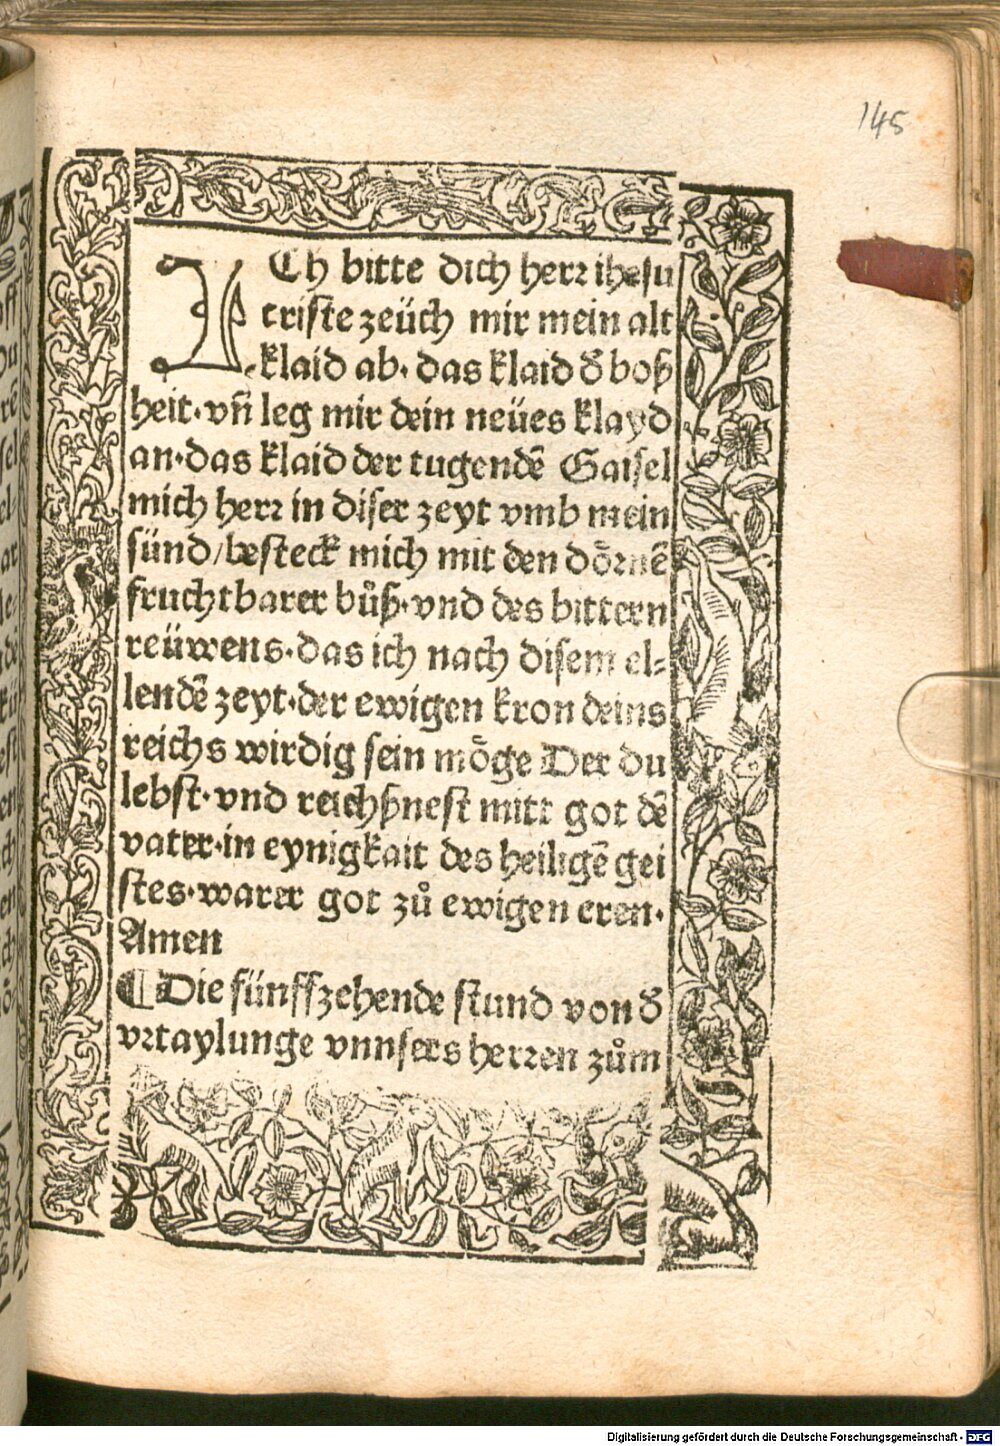 145
ICh bitte dich herr ihesu
criste zeüch mir mein alt
klaid ab· das klaid d̄ boß
heit· vn̄ leg mir dein neües klayd
an·das klaid der tugendē Gaisel
mich herr in diser zeyt vmb mein
sünd/besteck mich mit den dörnē
fruchtbarer bůß·vnd des bittern
reüwens·das ich nach disem el⸗
lendē zeyt·der ewigen kron deins
reichs wirdig sein möge Der du
lebst·vnd reichßnest mitt got dē
vater·in eynigkait des heiligē gei
stes·warer got zů ewigen eren·
Amen
¶Die fünffzehende stund von d̄
vrtaylunge vnnsers herren zům
Digitalisierung gefördert durch die Deutsche Forschungsgemeinschaft - DFG